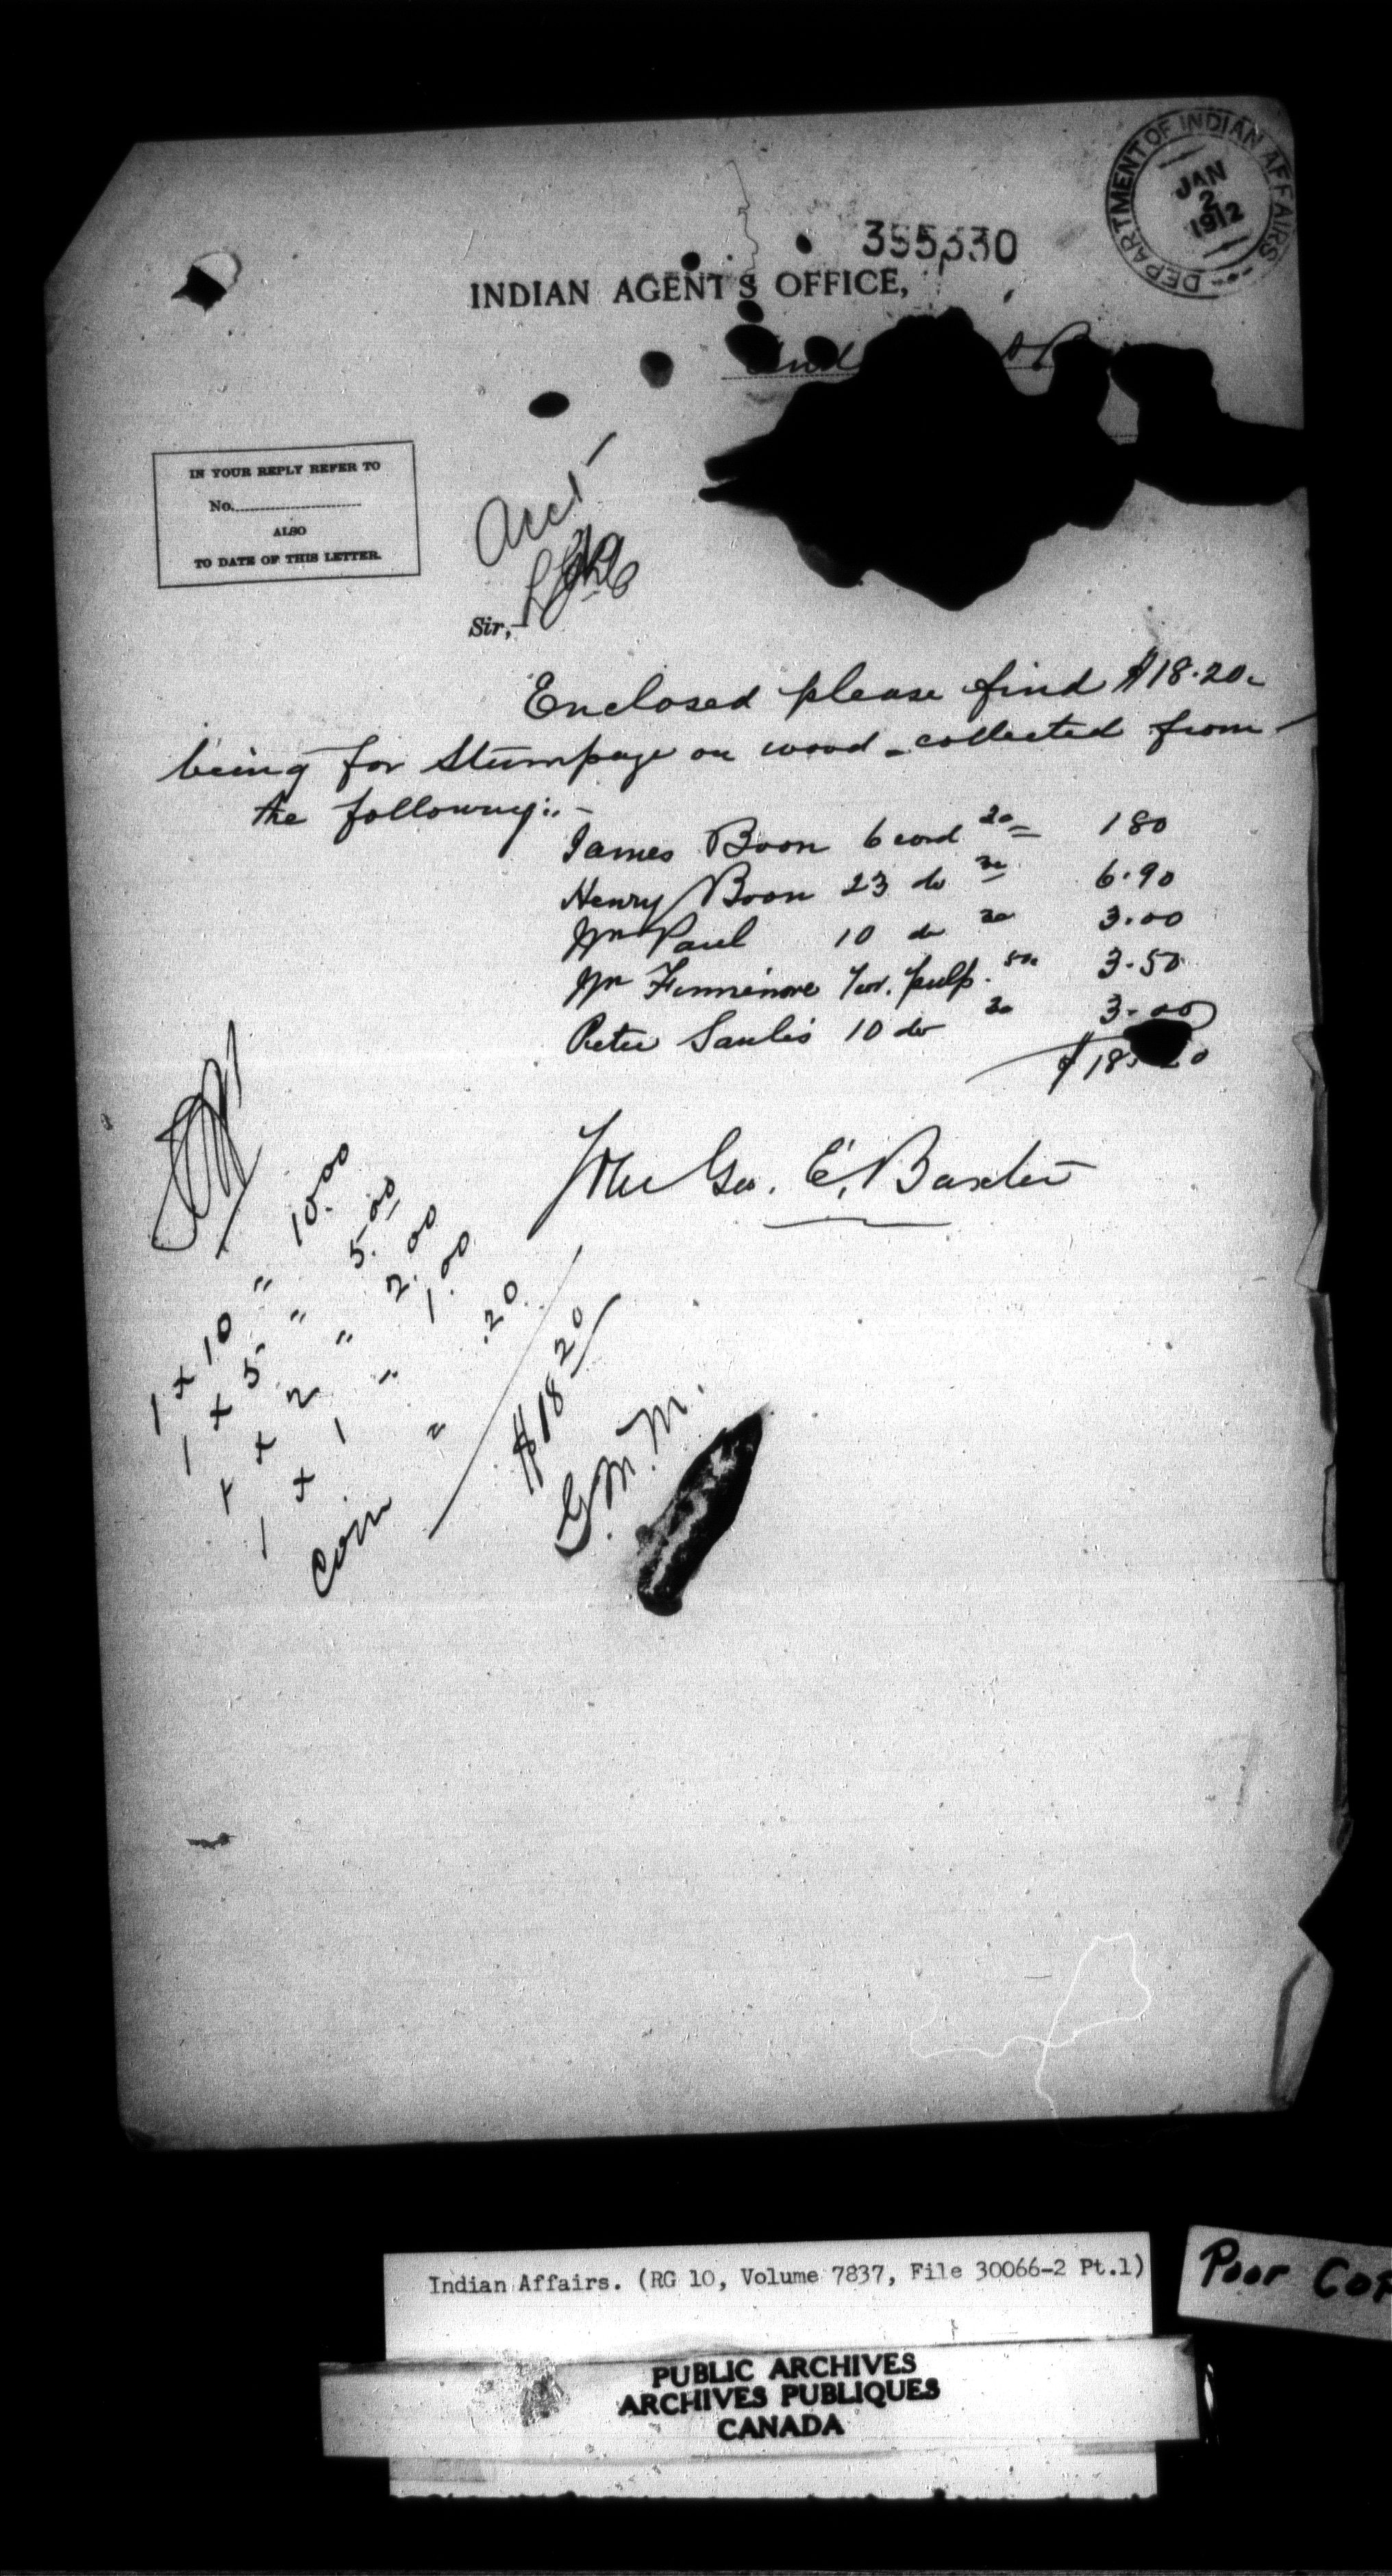 DEPARTMENT OF INDIAN AFFAIRS
JAN
2
1912
355330
INDIAN AGENT'S OFFICE,
IN YOUR REPLY REFER TO
No.
ALSO
TO DATE OF THIS LETTER.
Acct
Sir,
Enclosed please find $18.20
being for Stumpage on wood - collected from
the following:-
James Boon 6 cord 30 180
Henry Boon 23 do 30 6.90
Wm Paul 10 do 30 3.00
Wm Fennimore 7 cor. pulp. 50 3.50
Peter Saulis 10 do 30 3.00
$18.20
Geo. E. Baxter
1 x 10 " 10.00
1 x 5 " 5.00
1 x 2 " 2.00
1 x 1 " 1.00
Coin " .20
$18 20
G.M.M.
Indian Affairs. (RG 10, Volume 7837, File 30066-2 Pt.1)
Poor Cop
PUBLIC ARCHIVES
ARCHIVES PUBLIQUES
CANADA